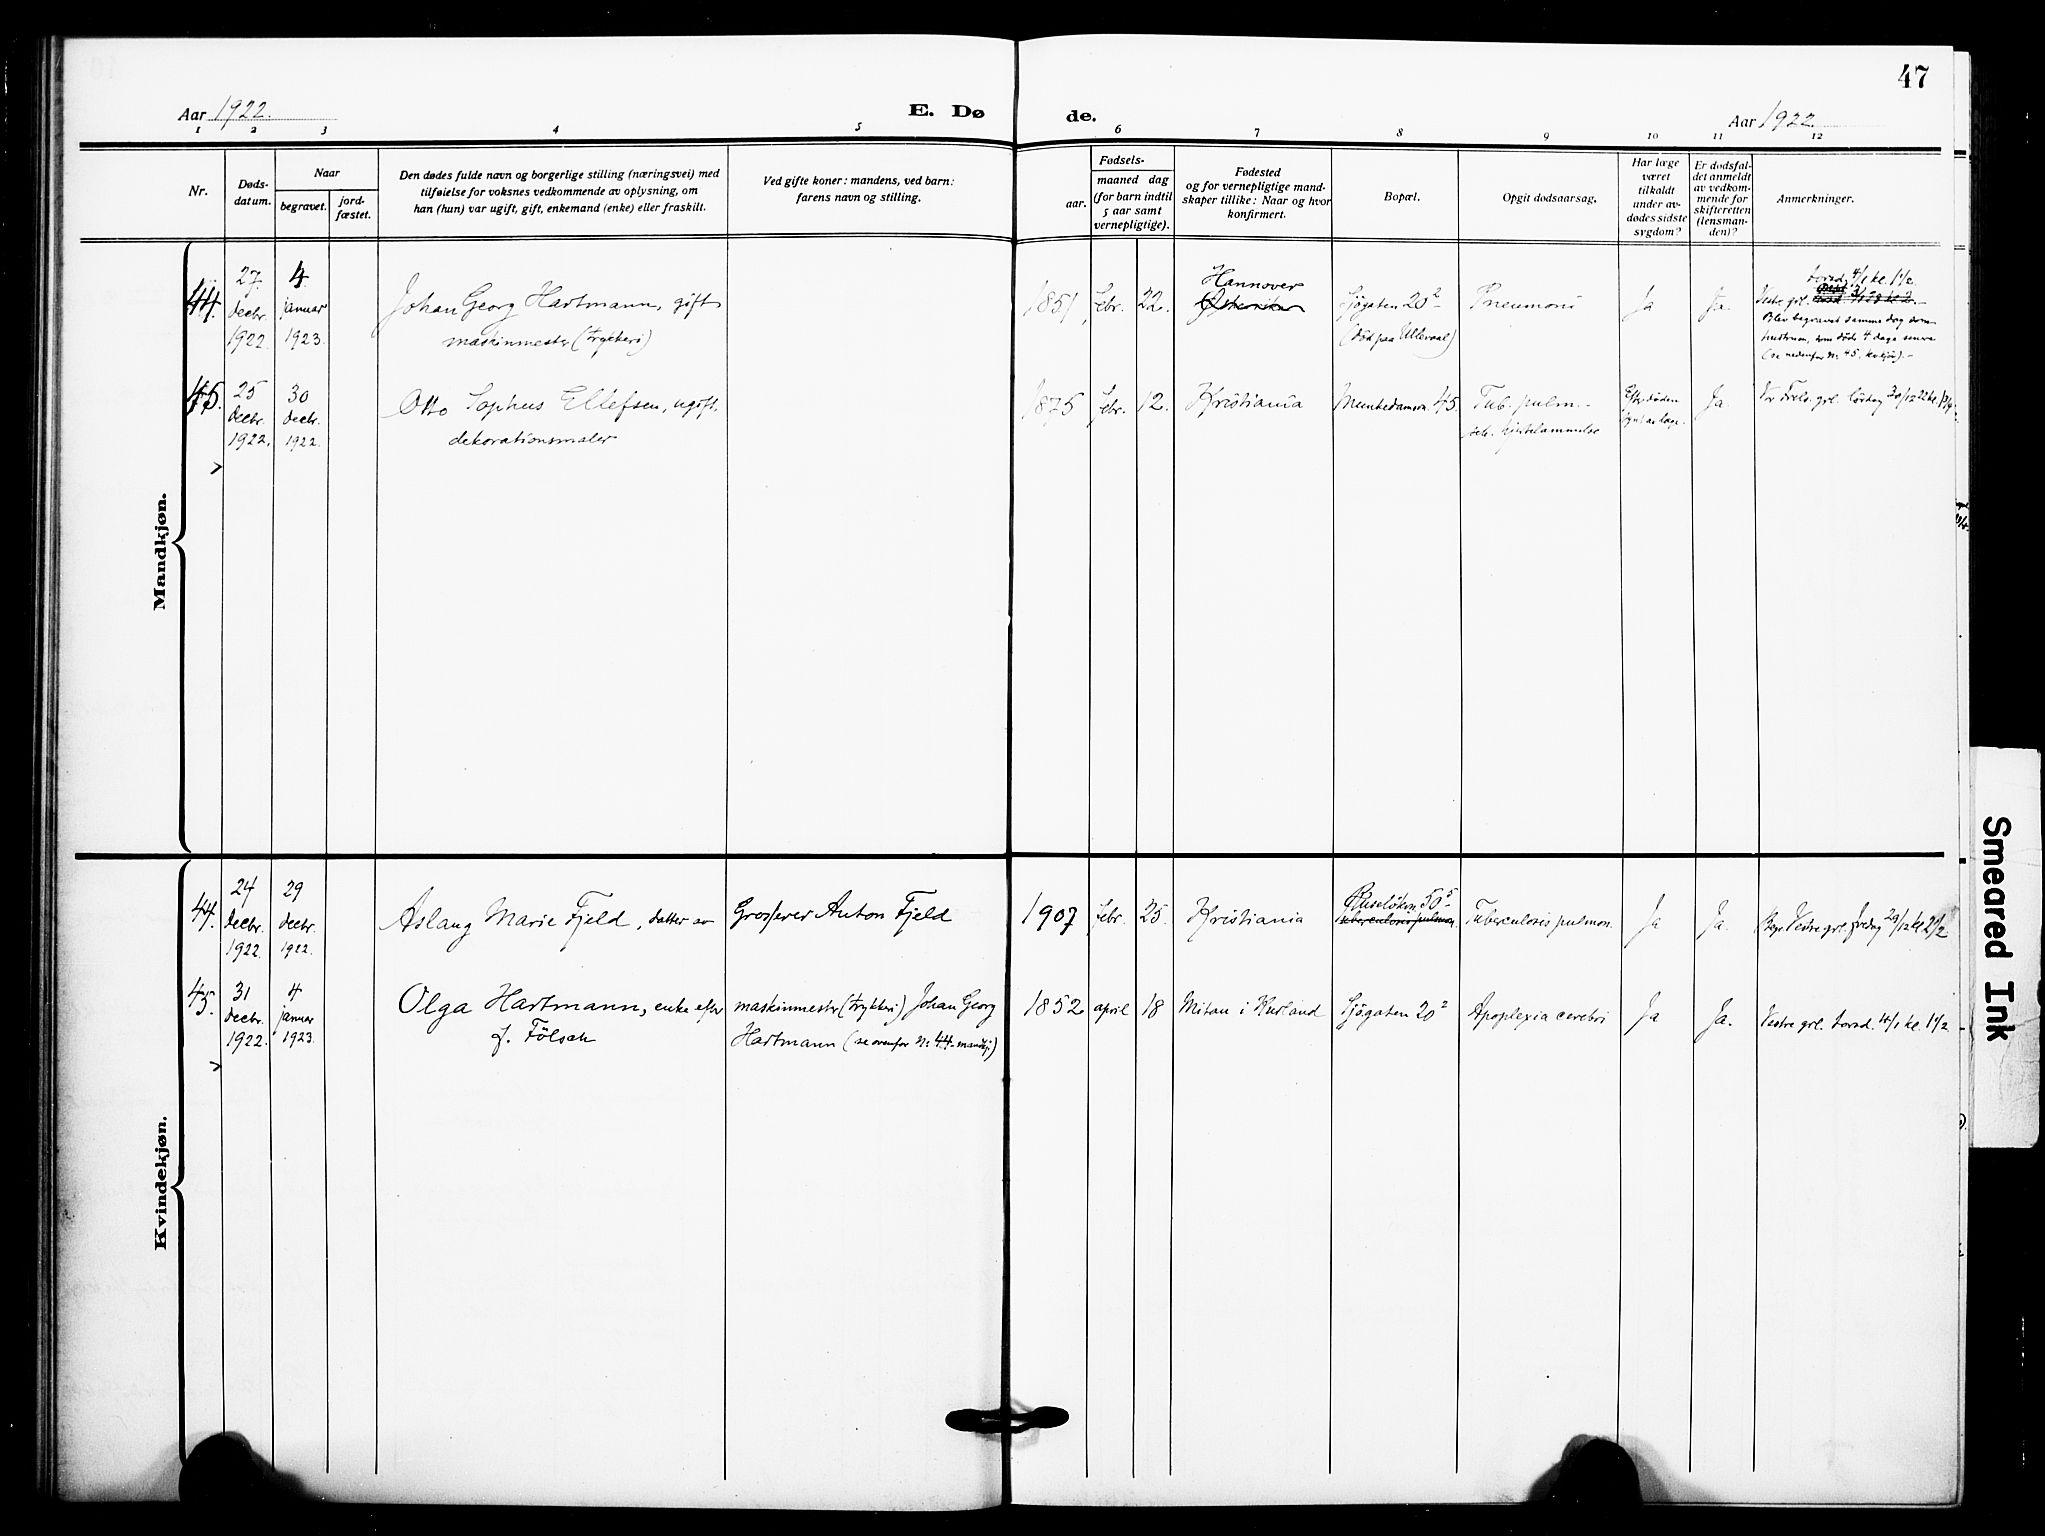 47
Aar 1922.
E. Dø de.
Aar 1922.
1 2 3 4 5 6 7 8 9 10 11 12
Nr.
Døds-
datum.
Naar
begravet.
jord-
fæstet.
Den dødes fulde navn og borgerlige stilling (næringsvei) med
tilføielse for voksnes vedkommende av oplysning, om
han (hun) var ugift, gift, enkemand (enke) eller fraskilt.
Ved gifte koner: mandens, ved barn:
farens navn og stilling.
Fødsels-
aar.
maaned dag
(for barn indtil
5 aar samt
vernepligtige).
Fødested
og for vernepligtige mand-
skaper tillike: Naar og hvor
konfirmert.
Bopæl.
Opgit dødsaarsag.
Har læge
været
tilkaldt
under av-
dødes sidste
sygdom?
Er dødsfal-
det anmeldt
av vedkom-
mende for
skifteretten
(lensman-
den)?
Anmerkninger.
Mandkjøn.
44.
27.
decbr.
1922.
4.
januar
1923.
Johan Georg Hartmann, gift
maskinmester (trykkeri)
1851
febr.
22.
Hannover
Østerrike
Sjøgaten 20²
(død paa Ullevaal)
Pneumoni
Ja
Ja.
torsd. 4/1 kl. 1 1/2.
Vestre grl.
Blev begravet samme dag som
hustruen, som døde 4 dage senere
(se nedenfor Nr 45, kvkjøn). -
45.
25
decbr.
1922.
30
decbr.
1922.
Otto Sophus Ellefsen, ugift.
dekorationsmaler
1875
febr.
12.
Kristiania
Munkedamsv. 45.
Tub. pulm. -
Efter døden
synt av læge.
Ja.
Vor Frels. grl. lørdag 30/12 22 kl.
Kvindekjøn.
44.
24
decbr.
1922.
29
decbr.
1922.
Aslaug Marie Fjeld, datter av
Grosserer Anton Fjeld
1907
febr.
25.
Kristiania
Ruseløkv. 50⁵
Tuberculosis pulmon.
Tuberculosis pulmon.
Ja
Ja.
Vestre grl. fredag 29/12 kl 2 1/2
45.
31
decbr.
1922.
4
januar
1923.
Olga Hartmann, enke efter
f. Fölsch
maskinmester (trykkeri) Johan Georg
Hartmann (se ovenfor Nr 44 - mandkj.)
1852
april
18
Mitau i Kurland
Sjøgaten 20²
Apoplexia cerebri
Ja
Ja.
Vestre grl. torsd. 4/1 kl. 1 1/2
Smeared Ink